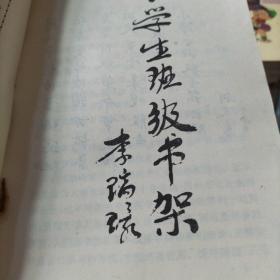 学生班级书架
李瑞环